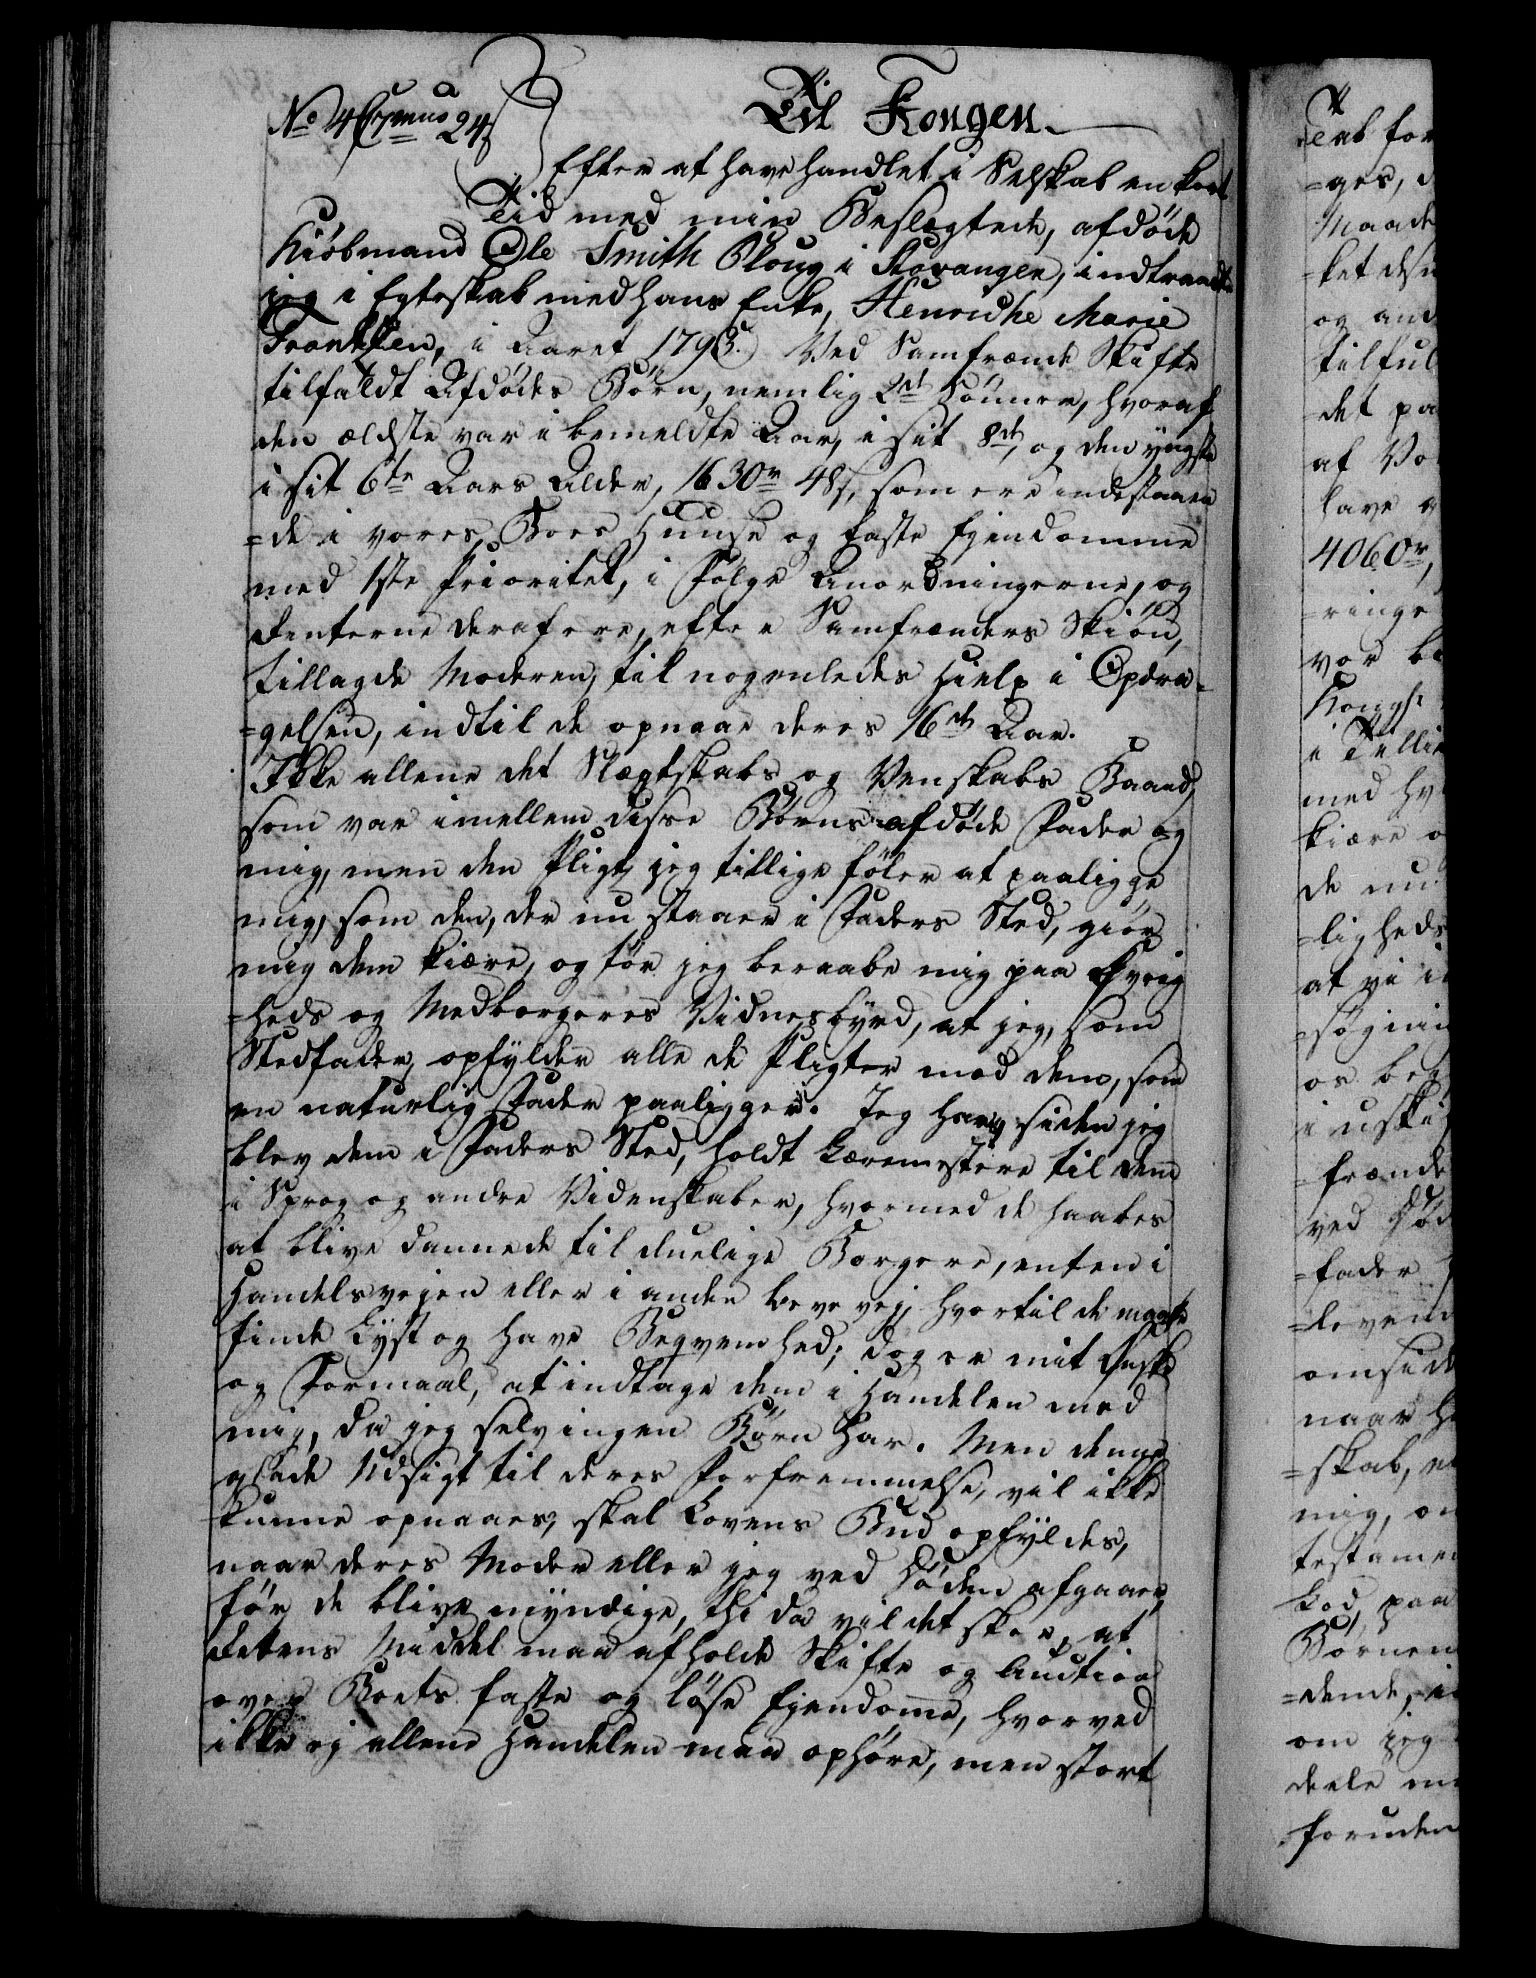 Til Kongen.
Efter at have handlet i Selskab en kort
Tid med min Beslægtede, afdöde
Kiöbmand Ole Smith Ploug i Stavanger, indtraadte
jeg i Egteskab med hans Enke, Henriche Marie
i Aaret 1793. Ved Samfrænde Skifte
tilfaldt Afdödes Börn, nemlig 2de Sönner, hvoraf
den ældste var i bemeldte Aar, i sit 8de, og den yngste
i sit 6te Aars Alder, 1630rd 48s, som ere indestaaen
=de i vores Boes Huuse og faste Ejendomme
med 1ste Prioritet, i Fölge Anordningerne, og
Renterne deraf ere, efter Samfrænders Skiön,
tillagde Moderen, til nogenledes Hielp i Opdra=
=gelsen, indtil de opnaae deres 16de Aar.
Ikke allene det Slægtskabs og Venskabs Baand,
som var imellem disse Börns afdöde Fader og
mig, men den Pligt jeg tillige föler at paaligge
mig, som den, der nu staaer i Faders Sted, giör
mig dem kiære, og tör jeg beraabe mig paa Övrig
=heds og Medborgeres Vidnesbyrd, at jeg, som
Stedfader, opfylder alle de Pligter mod dem, som
en naturlig Fader paaligger. Jeg har, siden jeg
blev dem i Faders Sted, holdt Læremestere til dem
i Sprog og andre Videnskaber, hvormed de haabes
at blive dannede til duelige Borgere, enten i
Handelsvejen eller i anden Levevej, hvortil de maatte
finde Lyst og have Beqvemhed; dog er mit Önske
og Formaal, at indtage dem i Handelen med
mig, da jeg selv ingen Börn har. Men denne
glade Udsigt til deres Forfremmelse, vil ikke
kunne opnaaes, skal Lovens Bud opfyldes,
naar deres Moder eller jeg ved Döden afgaaer,
för de blive myndige, thi da vil det skee, at
Rettens Middel maa afholde Skifte og Auction
over Boets faste og löse Ejendomme, hvorved
ikke ej allene Handelen maa ophöre, men stort